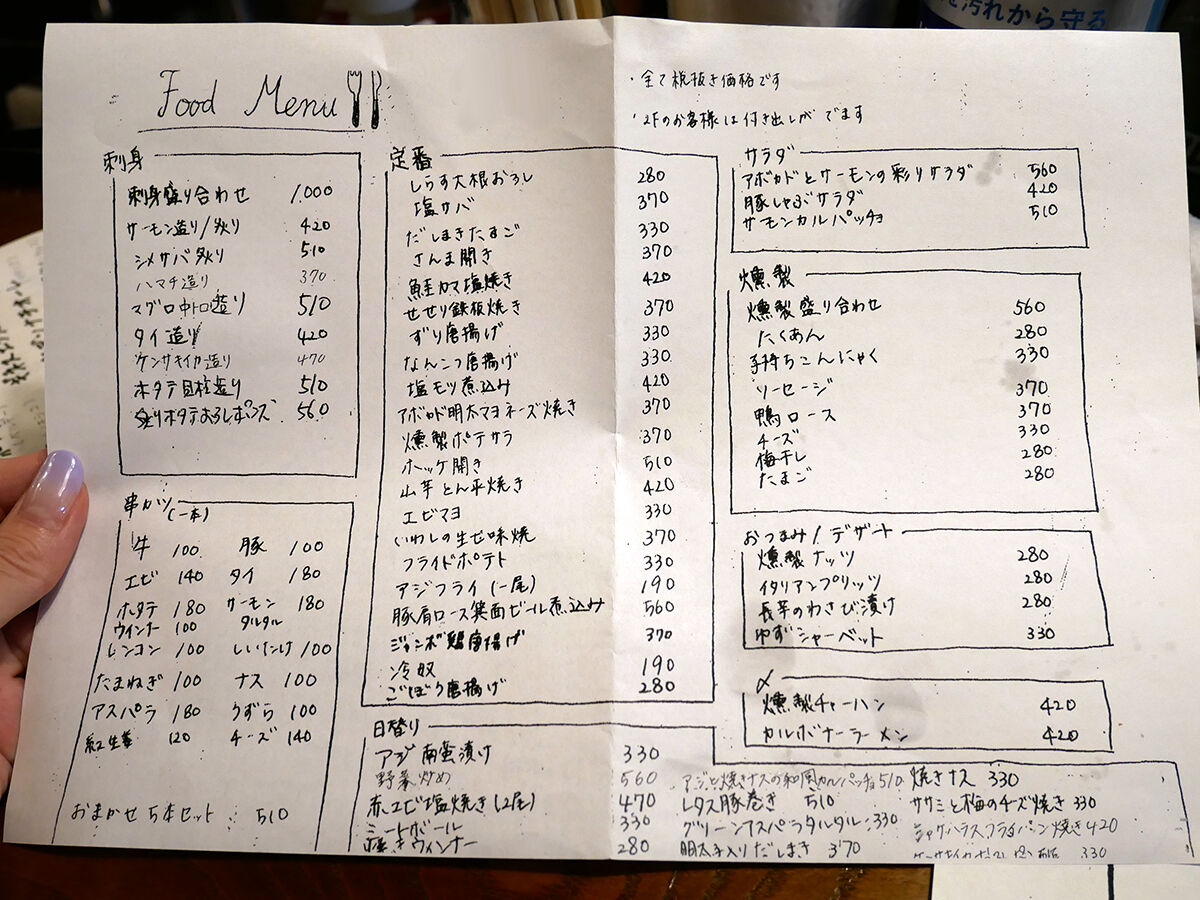 と汚れから守る
Food Menu
・全て税抜き価格です
・2Fのお客様は付き出しがでます
刺身
刺身盛り合わせ 1,000
サーモン造り/炙り 420
シメサバ炙り 510
ハマチ造り 370
マグロ中トロ造り 510
タイ造り 420
ケンサキイカ造り 470
ホタテ貝柱造り 510
炙りホタテおろしポンズ 560
串カツ(一本)
牛 100 豚 100
エビ 140 タイ 180
ホタテ 180 サーモンタルタル 180
ウインナー 100
レンコン 100 しいたけ 100
たまねぎ 100 ナス 100
アスパラ 180 うずら 100
紅生姜 120 チーズ 140
おまかせ5本セット 510
定番
しらす大根おろし 280
塩サバ 370
だしまきたまご 330
さんま開き 370
鮭カマ塩焼き 420
せせり鉄板焼き 370
ずり唐揚げ 330
なんこつ唐揚げ 330
塩モツ煮込み 420
アボカド明太マヨネーズ焼き 370
燻製ポテサラ 370
ホッケ開き 510
山芋とん平焼き 420
エビマヨ 330
いわしの生ゼ味焼 370
フライドポテト 330
アジフライ(一尾) 190
豚肩ロース箕面ビール煮込み 560
ジャンボ鶏唐揚げ 370
冷奴 190
ごぼう唐揚げ 280
サラダ
アボカドとサーモンの彩りサラダ 560
豚しゃぶサラダ 420
サーモンカルパッチョ 510
燻製
燻製盛り合わせ 560
たくあん 280
手持ちこんにゃく 330
ソーセージ 370
鴨ロース 370
チーズ 330
梅干し 280
たまご 280
おつまみ/デザート
燻製ナッツ 280
イタリアンプリッツ 280
長芋のわさび漬け 280
ゆずシャーベット 330
〆
燻製チャーハン 420
カルボナーラーメン 420
日替り
アジ南蛮漬け 330
野菜炒め 560
赤エビ塩焼き(2尾) 470
ミートボール 330
焼きウィンナー 280
アジと焼きナスの和風カルパッチョ 510
レタス豚巻き 510
グリーンアスパラタルタル 330
明太子入りだしまき 370
焼きナス 330
ササミと梅のチーズ焼き 330
シャケハラスフライパン焼き 420
330